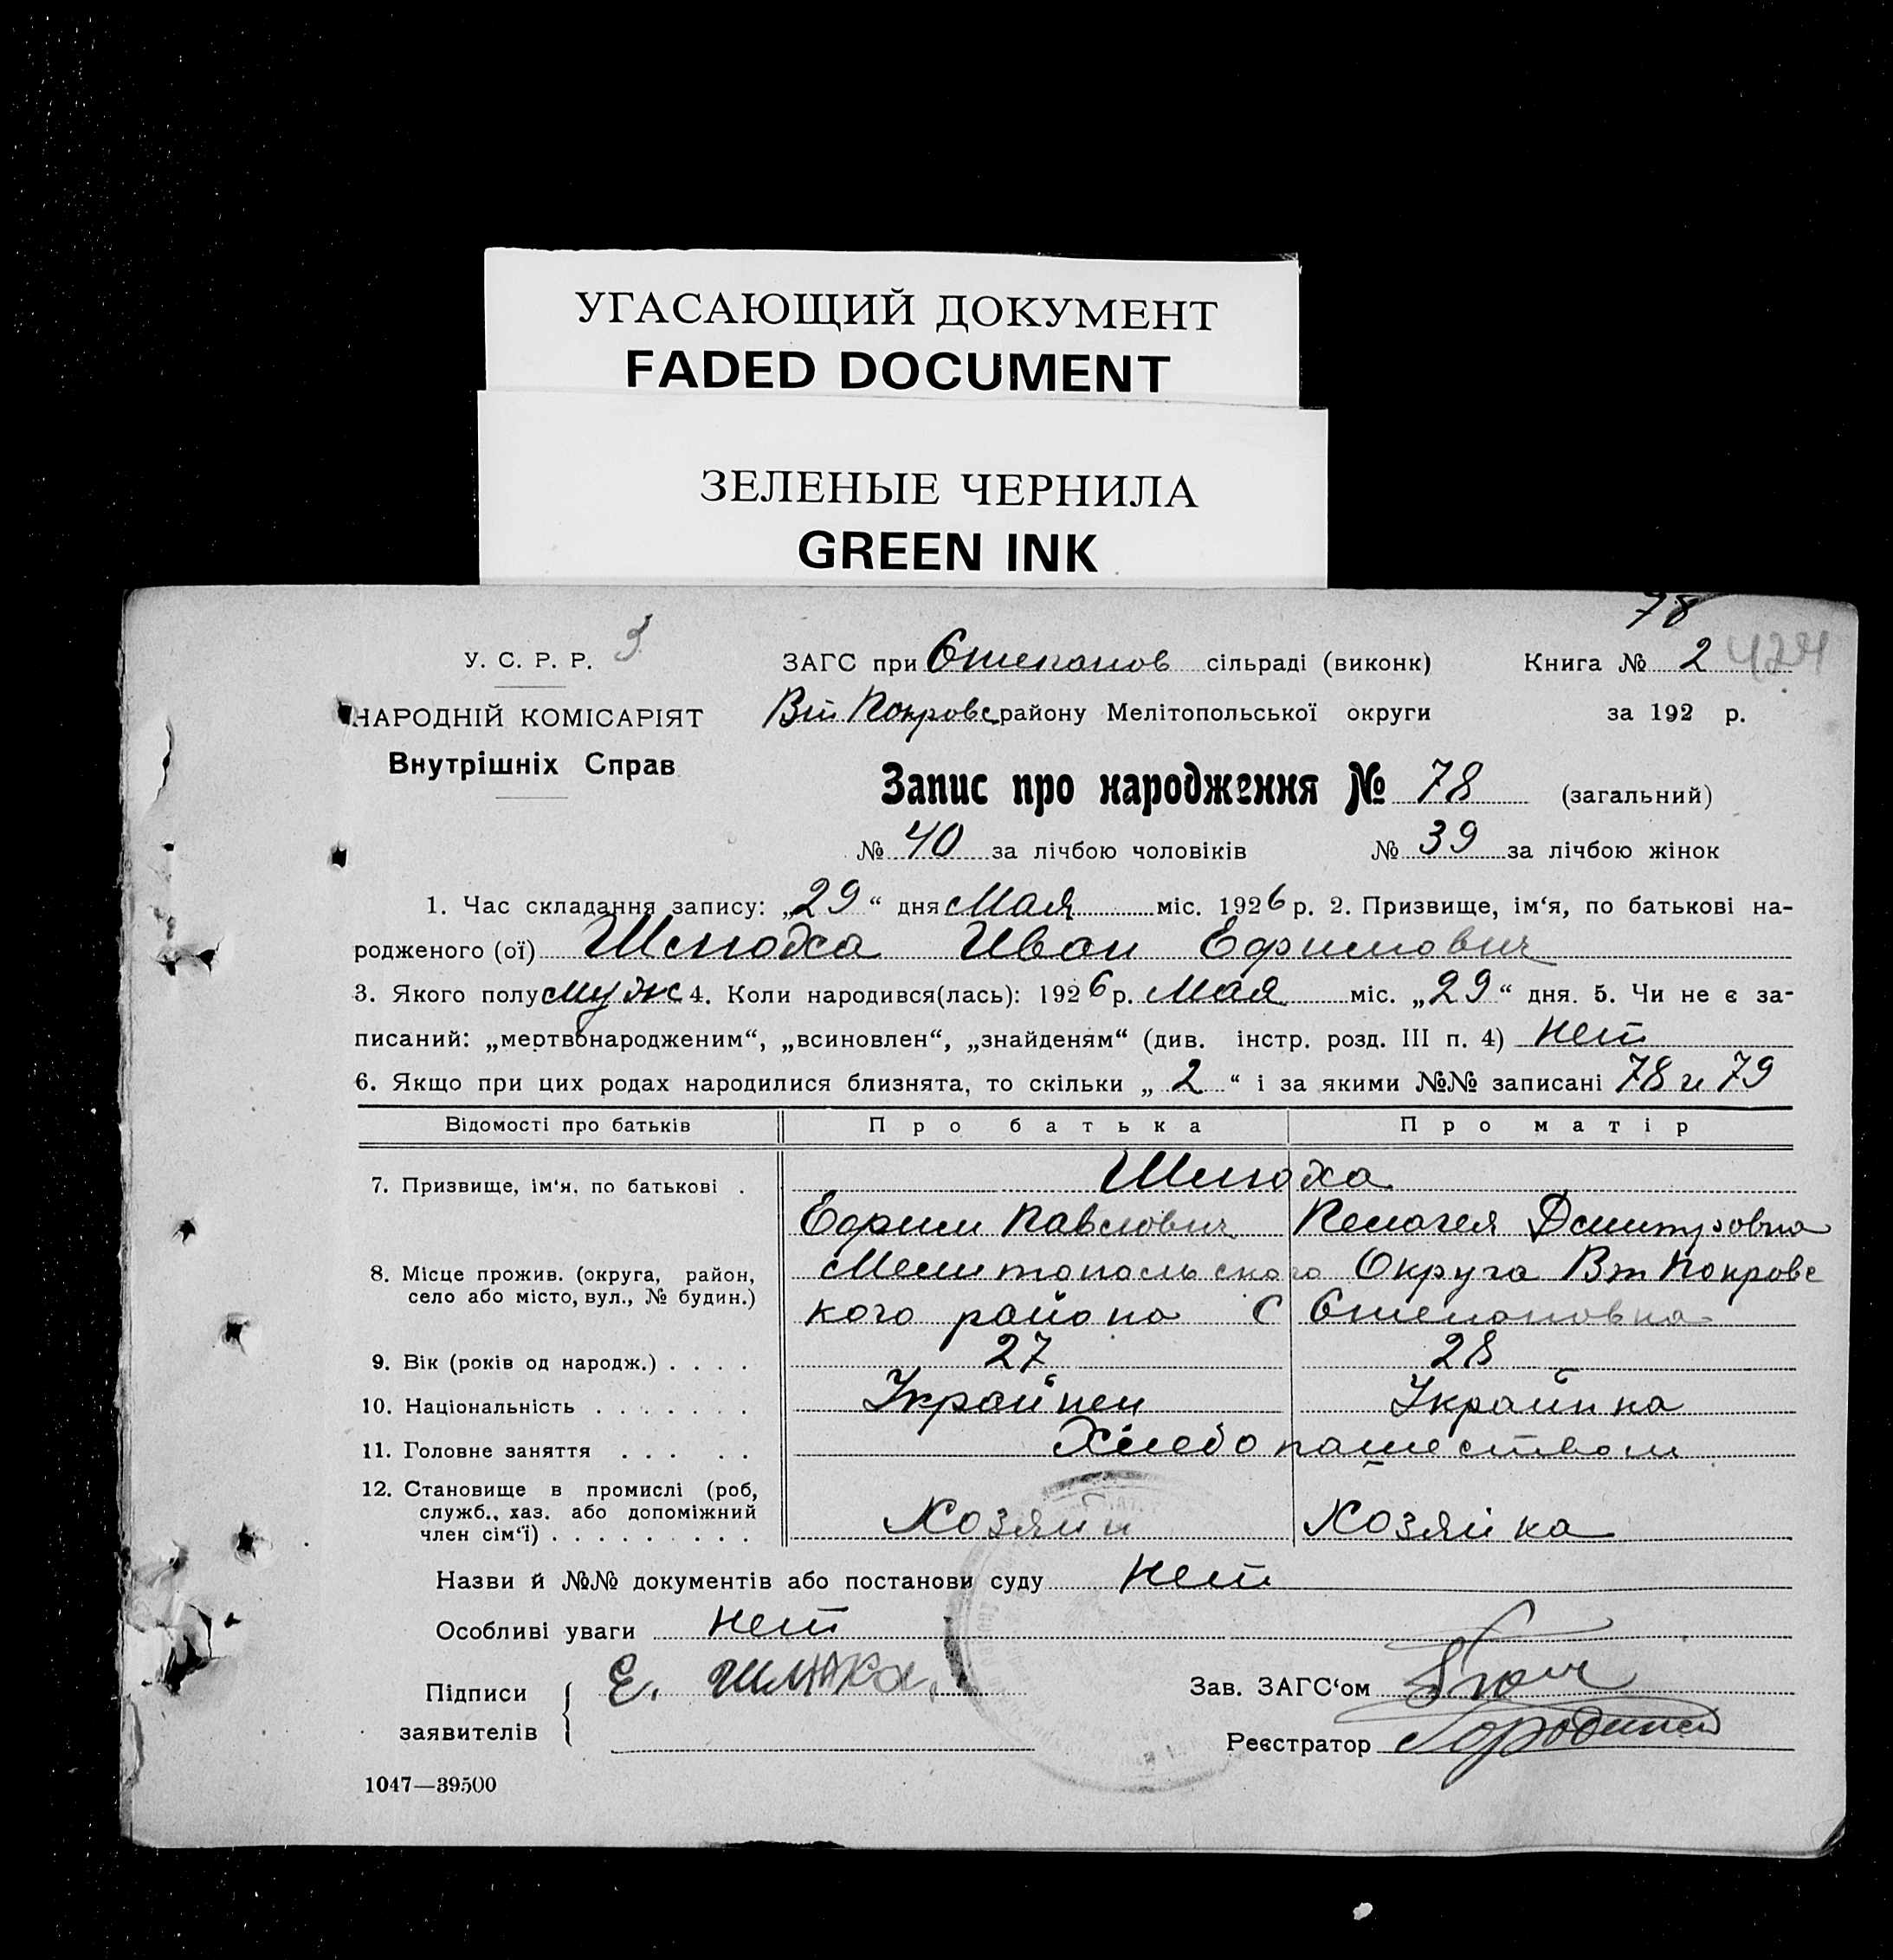 УГАСАЮЩИЙ ДОКУМЕНТ
FADED DOCUMENT
ЗЕЛЕНЫЕ ЧЕРНИЛА
GREEN INK
78
У. С. Р. Р.
ЗАГС при Степанов сільраді (виконк) Книга № 2 424
НАРОДНІЙ КОМІСАРІЯТ
Вт Покровс району Мелітопольської округи за 192 р.
Внутрішніх Справ
Запис про народження № 78 (загальний)
№ 40 за лічбою чоловіків № 39 за лічбою жінок
1. Час складання запису: „29“ дня Мая міс. 1926 р. 2. Призвище, ім‘я, по батькові на-
родженого (ої) Шлюха Иван Ефимович
3. Якого полу муж 4. Коли народився(лась): 1926 р. Мая міс. „29“ дня. 5. Чи не є за-
писаний: „мертвонародженим“, „всиновлен“, „знайденям“ (див. інстр. розд. III п. 4) нет
6. Якщо при цих родах народилися близнята, то скільки „2“ і за якими №№ записані 78 и 79
Відомості про батьків Про батька Про матір
7. Призвище, ім‘я, по батькові . Шлюха
Ефим Павлович Пелагея Дмитровна
8. Місце прожив. (округа, район, село або місто, вул., № будин.) Мелитопольского Округа Вт Покровс
кого района С Степановка
9. Вік (років од народж.) . . . . 27 28
10. Національність . . . . . . . Украйнец Украйнка
11. Головне заняття . . . . . Хлебопашеством
12. Становище в промислі (роб,
служб., хаз. або допоміжний
член сім‘ї) . . . . . . . . . Хозяин Хозяйка
Назви й №№ документів або постанови суду нет
Особливі уваги нет
Підписи заявителів Е.
Зав. ЗАГС‘ом
Реєстратор
1047—39500